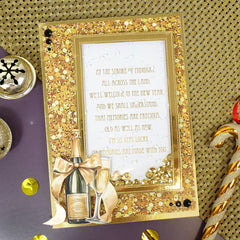 AT THE STROKE OF MIDNIGHT,
ALL ACROSS THE LAND,
WE'LL WELCOME IN THE NEW YEAR
AND WE SHALL UNDERSTAND,
THAT MEMORIES ARE PRECIOUS,
OLD AS WELL AS NEW,
I'M SO VERY LUCKY
MEMORIES ARE MADE WITH YOU